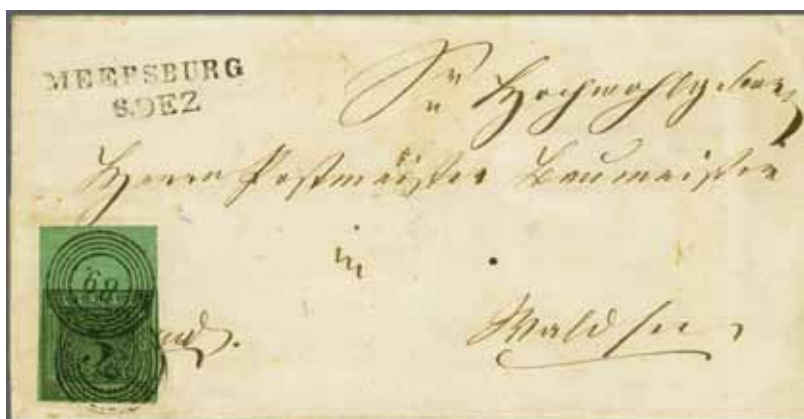 MEERSBURG
8. DEZ
Sr Hochwohlgeboren
Herrn Postmeister Baumeister
in
Waldsee